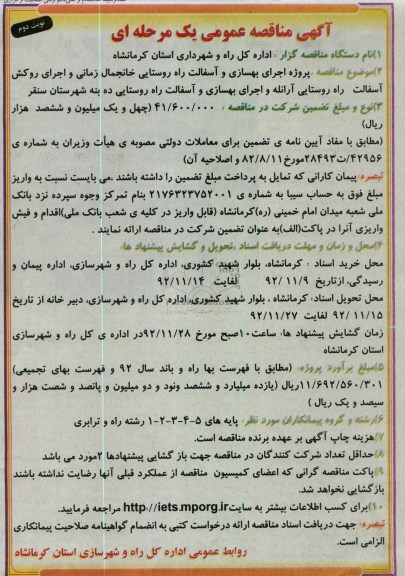 نوبت دوم
آگهی مناقصه عمومی یک مرحله ای
۱)نام دستگاه مناقصه گزار : اداره کل راه و شهرداری استان کرمانشاه
۲)موضوع مناقصه :پروژه اجرای بهسازی و آسفالت راه روستایی خانجمال زمانی و اجرای روکش
آسفالت راه روستایی آرانله و اجرای بهسازی و آسفالت راه روستایی ده بنه شهرستان سنقر
۳)نوع و مبلغ تضمین شرکت در مناقصه : ۴۱/۶۰۰/۰۰۰ (چهل و یک میلیون و ششصد هزار
ریال)
(مطابق با مفاد آیین نامه ی تضمین برای معاملات دولتی مصوبه ی هیأت وزیران به شماره ی
۴۲۹۵۶/ت۲۸۴۹۳مورخ۸۲/۸/۱۱ و اصلاحیه آن)
تبصره:پیمان کارانی که تمایل به پرداخت مبلغ تضمین را داشته باشند .می بایست نسبت به واریز
مبلغ فوق به حساب سیبا به شماره ی ۲۱۷۶۳۲۳۷۵۲۰۰۱ بنام تمرکز وجوه سپرده نزد بانک
ملی شعبه میدان امام خمینی (ره)کرمانشاه (قابل واریز در کلیه ی شعب بانک ملی)اقدام و فیش
واریزی آنرا در پاکت(الف)به عنوان تضمین شرکت در مناقصه ارائه نمایند .
۴)محل و زمان و مهلت دریافت اسناد ،تحویل و گشایش پیشنهاد ها:
محل خرید اسناد : کرمانشاه، بلوار شهید کشوری، اداره کل راه و شهرسازی، اداره پیمان و
رسیدگی، ازتاریخ ۹۲/۱۱/۹ لغایت ۹۲/۱۱/۱۴
محل تحویل اسناد: کرمانشاه ، بلوار شهید کشوری، اداره کل راه و شهرسازی، دبیر خانه از تاریخ
۹۲/۱۱/۱۵ لغایت ۹۲/۱۱/۲۷
زمان گشایش پیشنهاد ها: ساعت۱۰صبح مورخ ۹۲/۱۱/۲۸در اداره ی کل راه و شهرسازی
استان کرمانشاه
۵)مبلغ برآورد پروژه: (مطابق با فهرست بها راه و باند سال ۹۲ و فهرست بهای تجمیعی)
۱۱/۶۹۲/۵۶۰/۳۰۱ریال (یازده میلیارد و ششصد ونود و دو میلیون و پانصد و شصت هزار و
سیصد و یک ریال )
۶)رشته و گروه پیمانکاران مورد نظر: پایه های ۵-۴-۳-۲-۱ رشته راه و ترابری
۷)هزینه چاپ آگهی بر عهده برنده مناقصه است.
۸)حداقل تعداد شرکت کنندگان در مناقصه جهت باز گشایی پیشنهادها ۲مورد می باشد
۹)پاکت مناقصه گرانی که اعضای کمیسیون مناقصه از عملکرد قبلی آنها رضایت نداشته باشند
بازگشایی نخواهد شد.
۱۰)برای کسب اطلاعات بیشتر به سایت http://iets.mporg.ir مراجعه فرمایید.
تبصره: جهت دریافت اسناد مناقصه ارائه درخواست کتبی به انضمام گواهینامه صلاحیت پیمانکاری
الزامی است.
روابط عمومی اداره کل راه و شهرسازی استان کرمانشاه